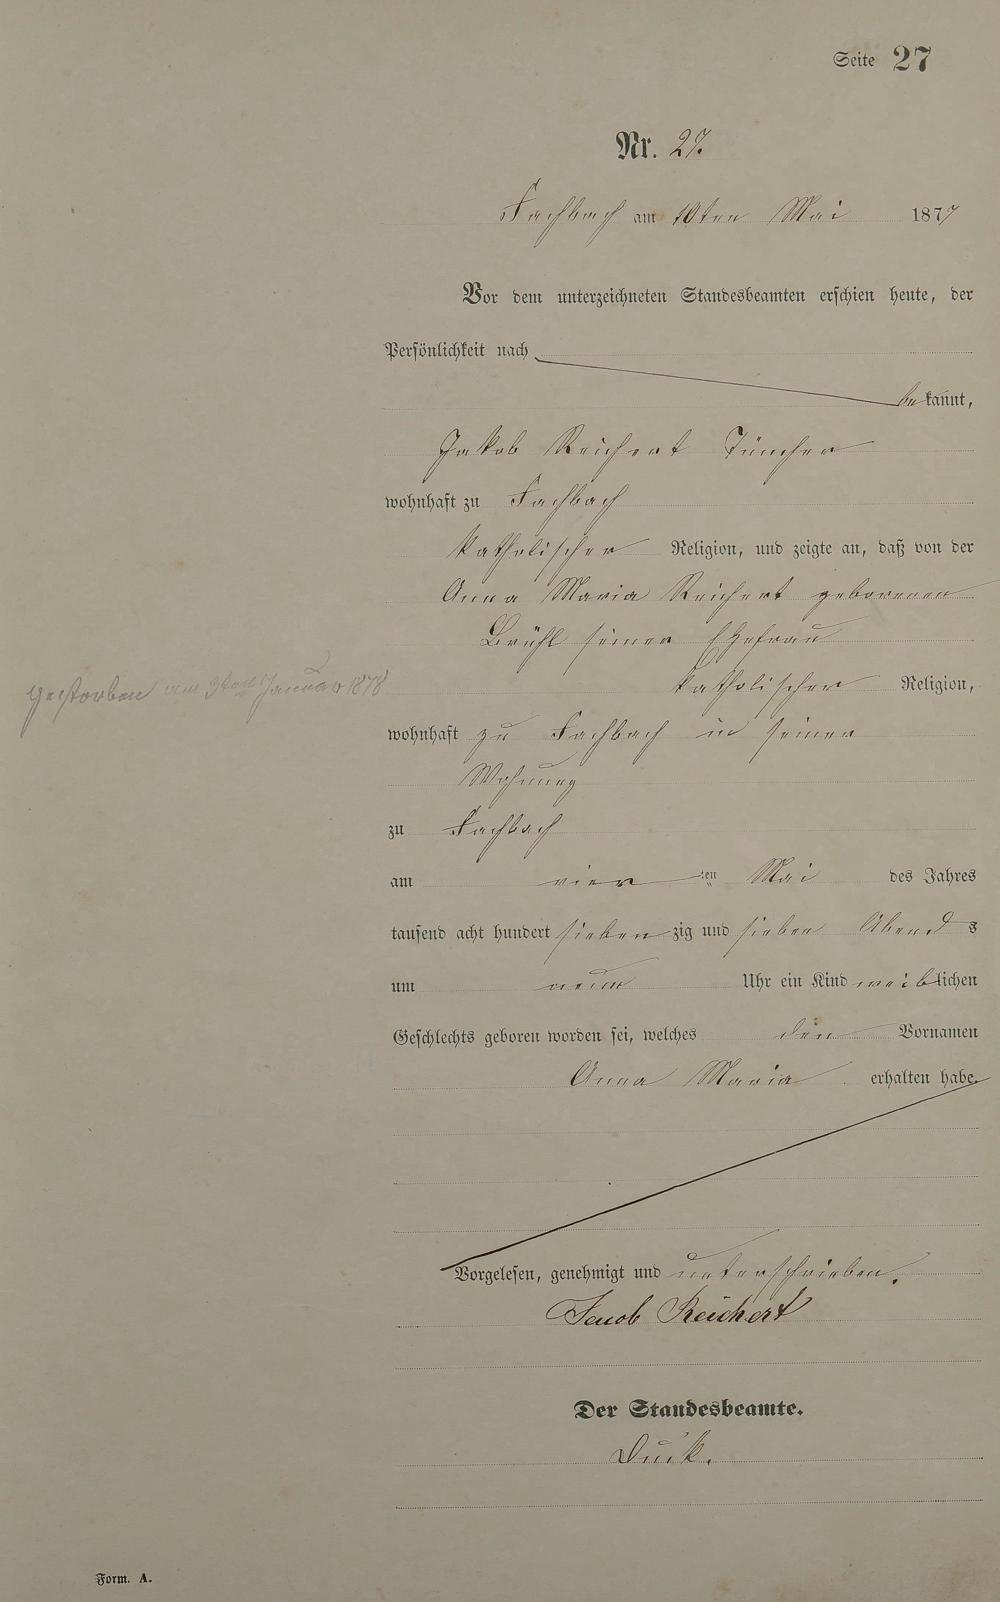 Seite 27
Nr. 27.
Fachbach am 10ten Mai 1877
Vor dem unterzeichneten Standesbeamten erschien heute, der
Persönlichkeit nach
bekannt,
Jakob Reichert Tüncher
wohnhaft zu Fachbach
katholischer Religion, und zeigte an, daß von der
Anna Maria Reichert geborenen
Brühl seiner Ehefrau
katholischer Religion,
gestorben am 3ten Januar 1878
wohnhaft zu Fachbach in seiner
Wohnung
zu Fachbach
am vier ten Mai des Jahres
tausend acht hundert siebenzig und sieben Abends
um neun Uhr ein Kind weiblichen
Geschlechts geboren worden sei, welches den Vornamen
Anna Maria erhalten habe.
Vorgelesen, genehmigt und unterschrieben.
Jacob Reichert
Der Standesbeamte.
Form. A.